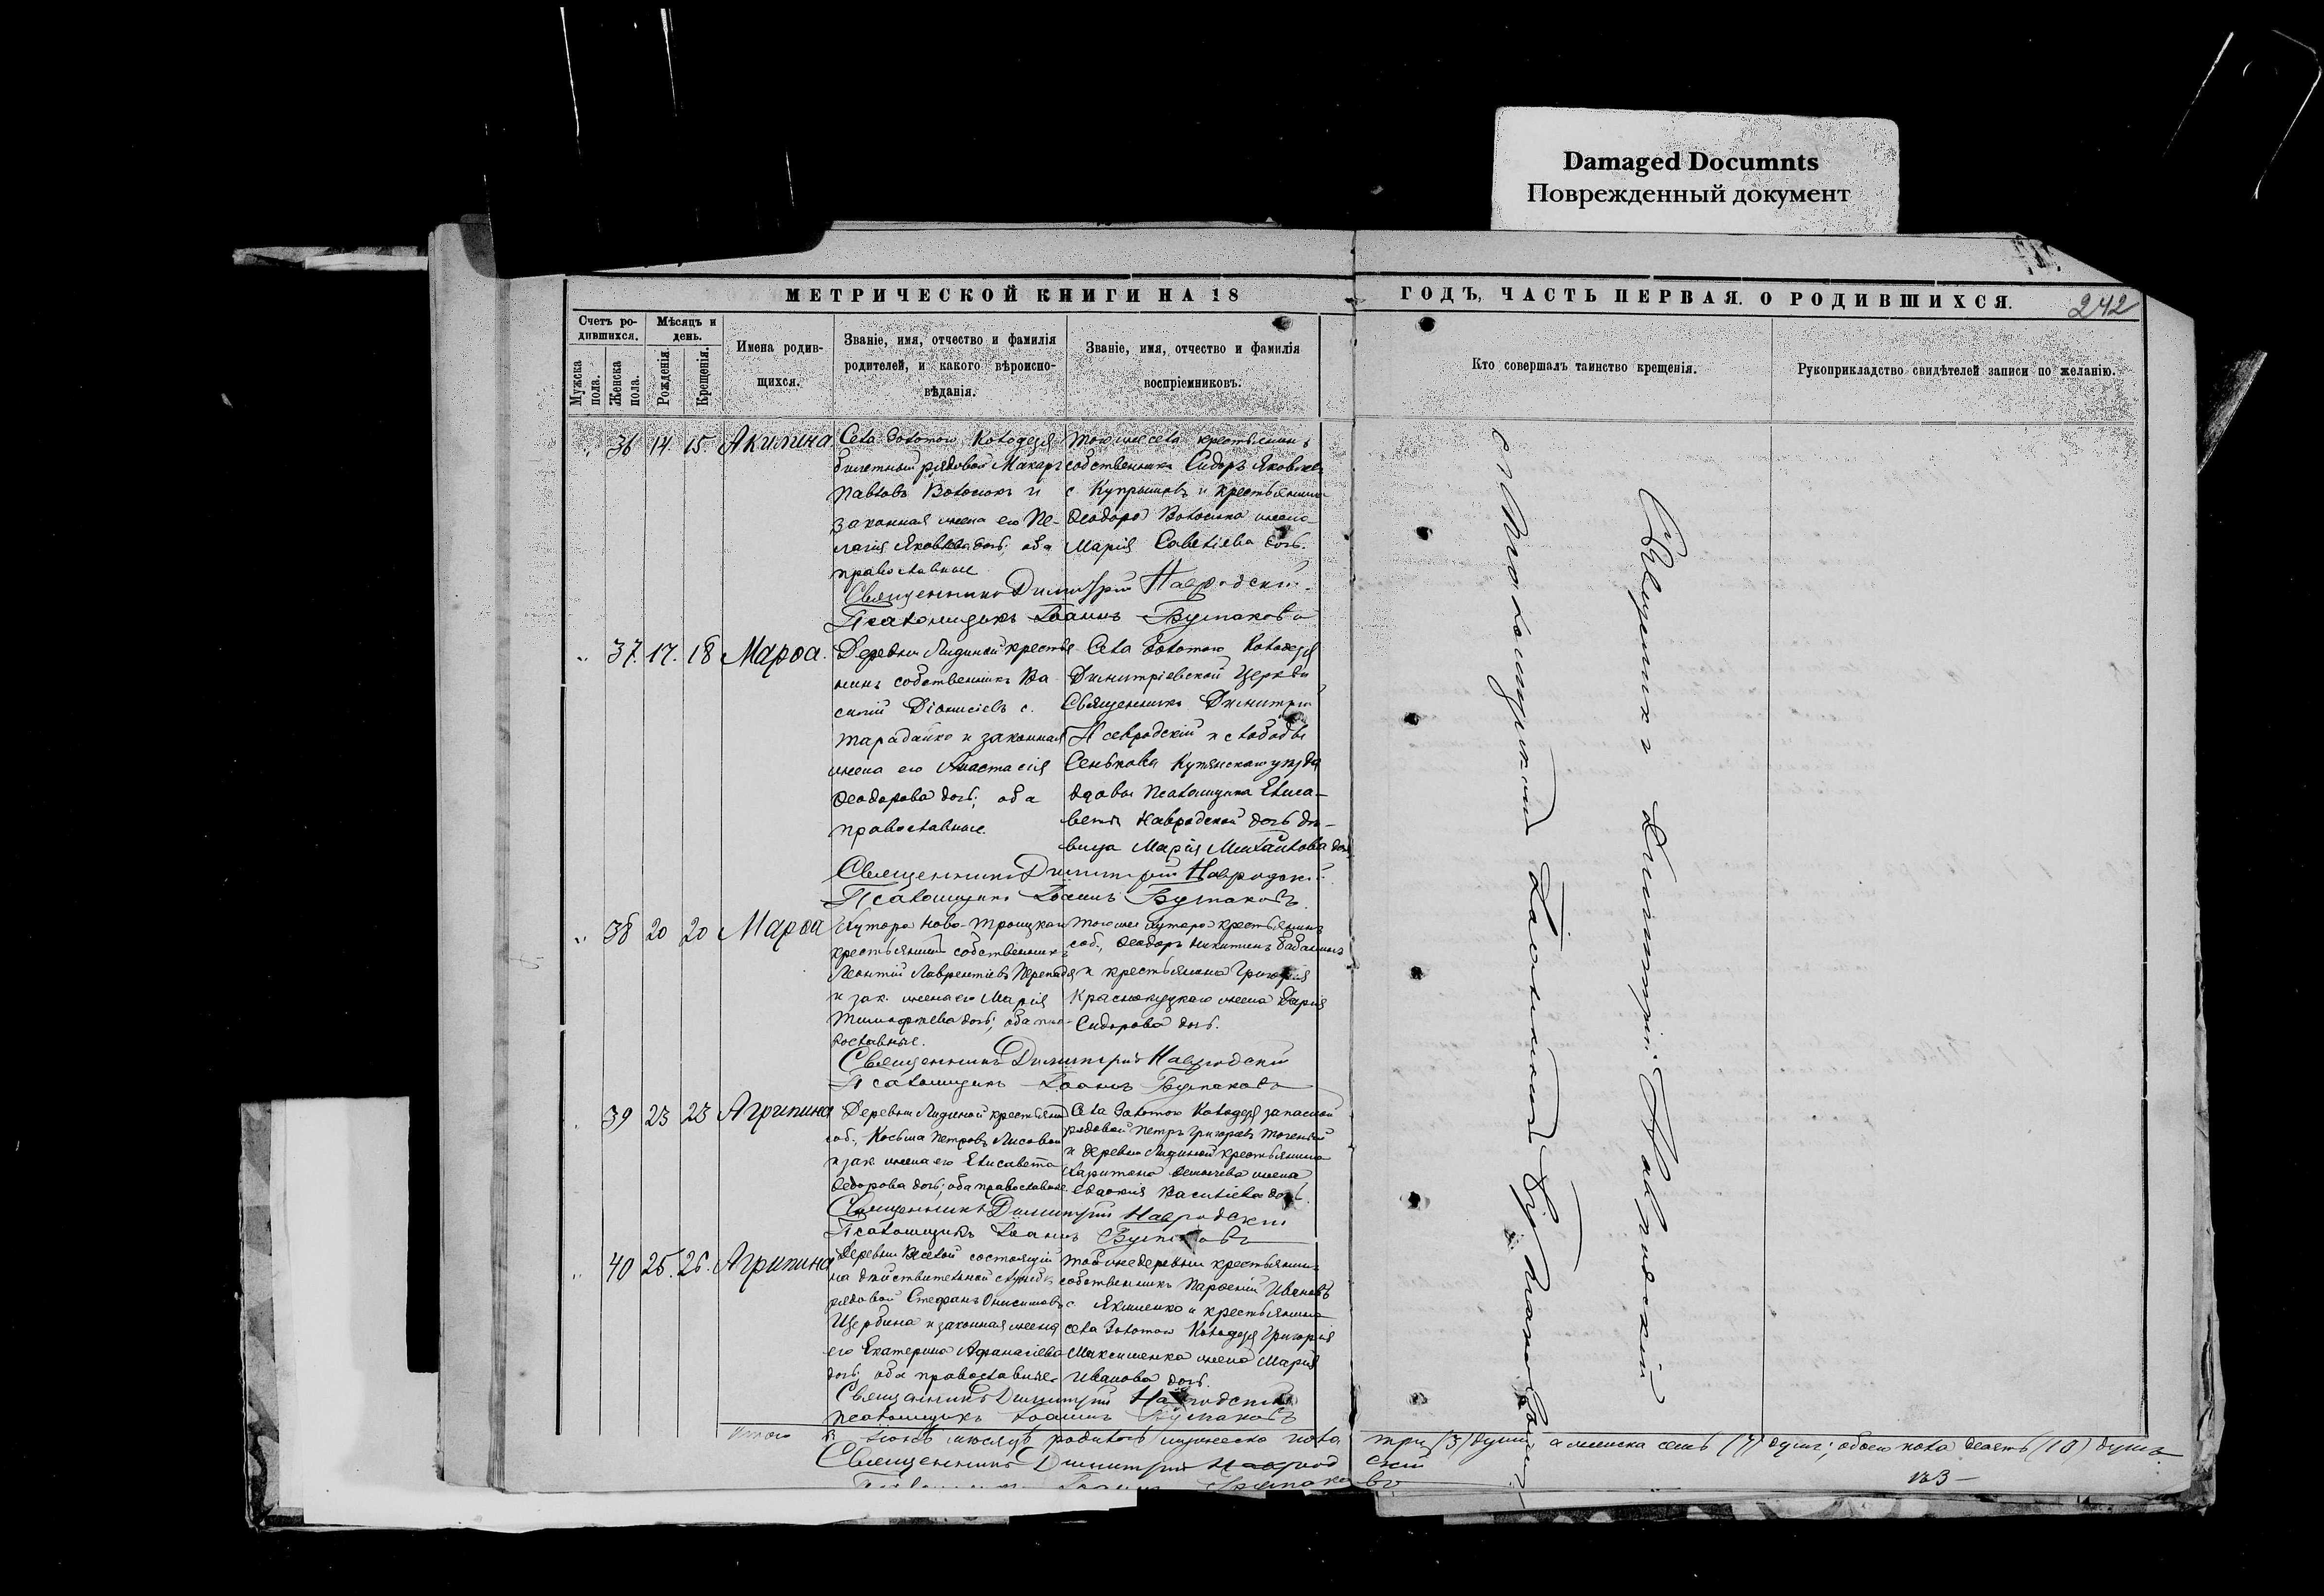 Damaged Documnts
Поврежденный документ
МЕТРИЧЕСКОЙ КНИГИ НА 18
ГОДЪ, ЧАСТЬ ПЕРВАЯ. О РОДИВШИХСЯ.
242
Счетъ ро-
дившихся.
Мужска пола.
Женска пола.
Мѣсяцъ и
день.
Рожденія.
Крещенія.
Имена родив-
щихся.
Званіе, имя, отчество и фамилія
родителей, и какого вѣроиспо-
вѣданія.
Званіе, имя, отчество и фамилія
воспріемниковъ.
Кто совершалъ таинство крещенія.
Рукоприкладство свидѣтелей записи по желанію.
36 14. 15. Акилина
Села Золотого Колодезя
билетный рядовой Макаръ
Павловъ Волошокъ и
законная жена его Пе-
лагія Яковлева дочь; оба
православные
Тогоже села крестьянинъ
собственникъ Сидоръ Яковлев
с. Купрышовъ и крестьянина
Ѳеодора Волошка жена
Марія Савельева дочь.
Священникъ Димитрій Навродскій
Псаломщикъ Іоаннъ Бутаковъ
37. 17. 18 Марѳа.
Деревни Лидиной крестья
нинъ собственникъ Ва-
силій Діонисіевъ с.
Тарадайко и законная
жена его Анастасія
Ѳеодорова дочь; оба
православные.
Села Золотого Колодезя
Димитріевской Церкви
Священникъ Димитрій
Навродскій и слободы
Сеньковы Купянскаго уѣзда
вдовы Псаломщика Елиса-
веты Навродской дочь дѣ-
вица Марія Михайлова дочь
Священникъ Димитрій Навродскій
Псаломщикъ Іоаннъ Бутаковъ
38 20 20 Марѳа
Хутора Ново-Троицкаго
крестьянинъ собственникъ
Леонтій Лаврентіевъ Перепадя
и зак. жена его Марія
Тимоѳеева дочь; оба пра-
вославные.
Тогоже хутора крестьянинъ
соб., Ѳеодоръ Никитинъ
и крестьянина Григорія
Краснокуцкаго жена Дарія
Сидорова дочь.
Священникъ Димитрій Навродскій
Псаломщикъ Іоаннъ Бутаковъ
39 23 23 Агрипина
Деревни Лидиной крестьянин
соб., Косьма Петровъ Лисовой
и зак. жена его Елисавета
Ѳедорова дочь; оба православные.
Села Золотого Колодезя запасный
рядовой Петръ Григорьевъ
и деревни Лидиной крестьянина
Харитона жена
Евдокія Васильева дочь.
Священникъ Димитрій Навродскій
Псаломщикъ Іоаннъ Бутаковъ
40 25. 26. Агрипина
Деревни Веселой состоящій
на дѣйствительной службѣ
рядовой Стефанъ Онисимовъ
Щербина и законная жена
его Екатерина Аѳанасіева
дочь; оба православные
Той же деревни крестьянин
собственникъ Парѳеній Ивановъ
с. Якименко и крестьянина
села Золотого Колодезя Григорія
Максименка жена Марія
Иванова дочь.
Священникъ Димитрій Навродскій
Псаломщикъ Іоаннъ Бутаковъ
Итого въ Іюнѣ мѣсяцѣ родилось мужеска пола три (3) души а женска семь (7) душъ; обоего пола десять (10) душъ.
Священникъ Димитрій Наврод скій
Псаломщикъ Іоаннъ Бутако въ
Священникъ Димитрій Навродскій